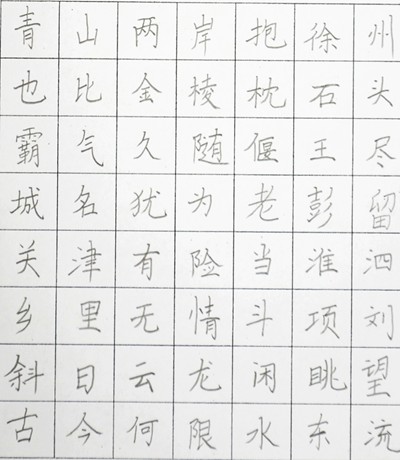 青山两岸抱徐州
也比金棱枕石头
霸气久随偃王尽
城名犹为老彭留
关津有险当淮泗
乡里无情斗项刘
斜日云龙闲眺望
古今何限水东流